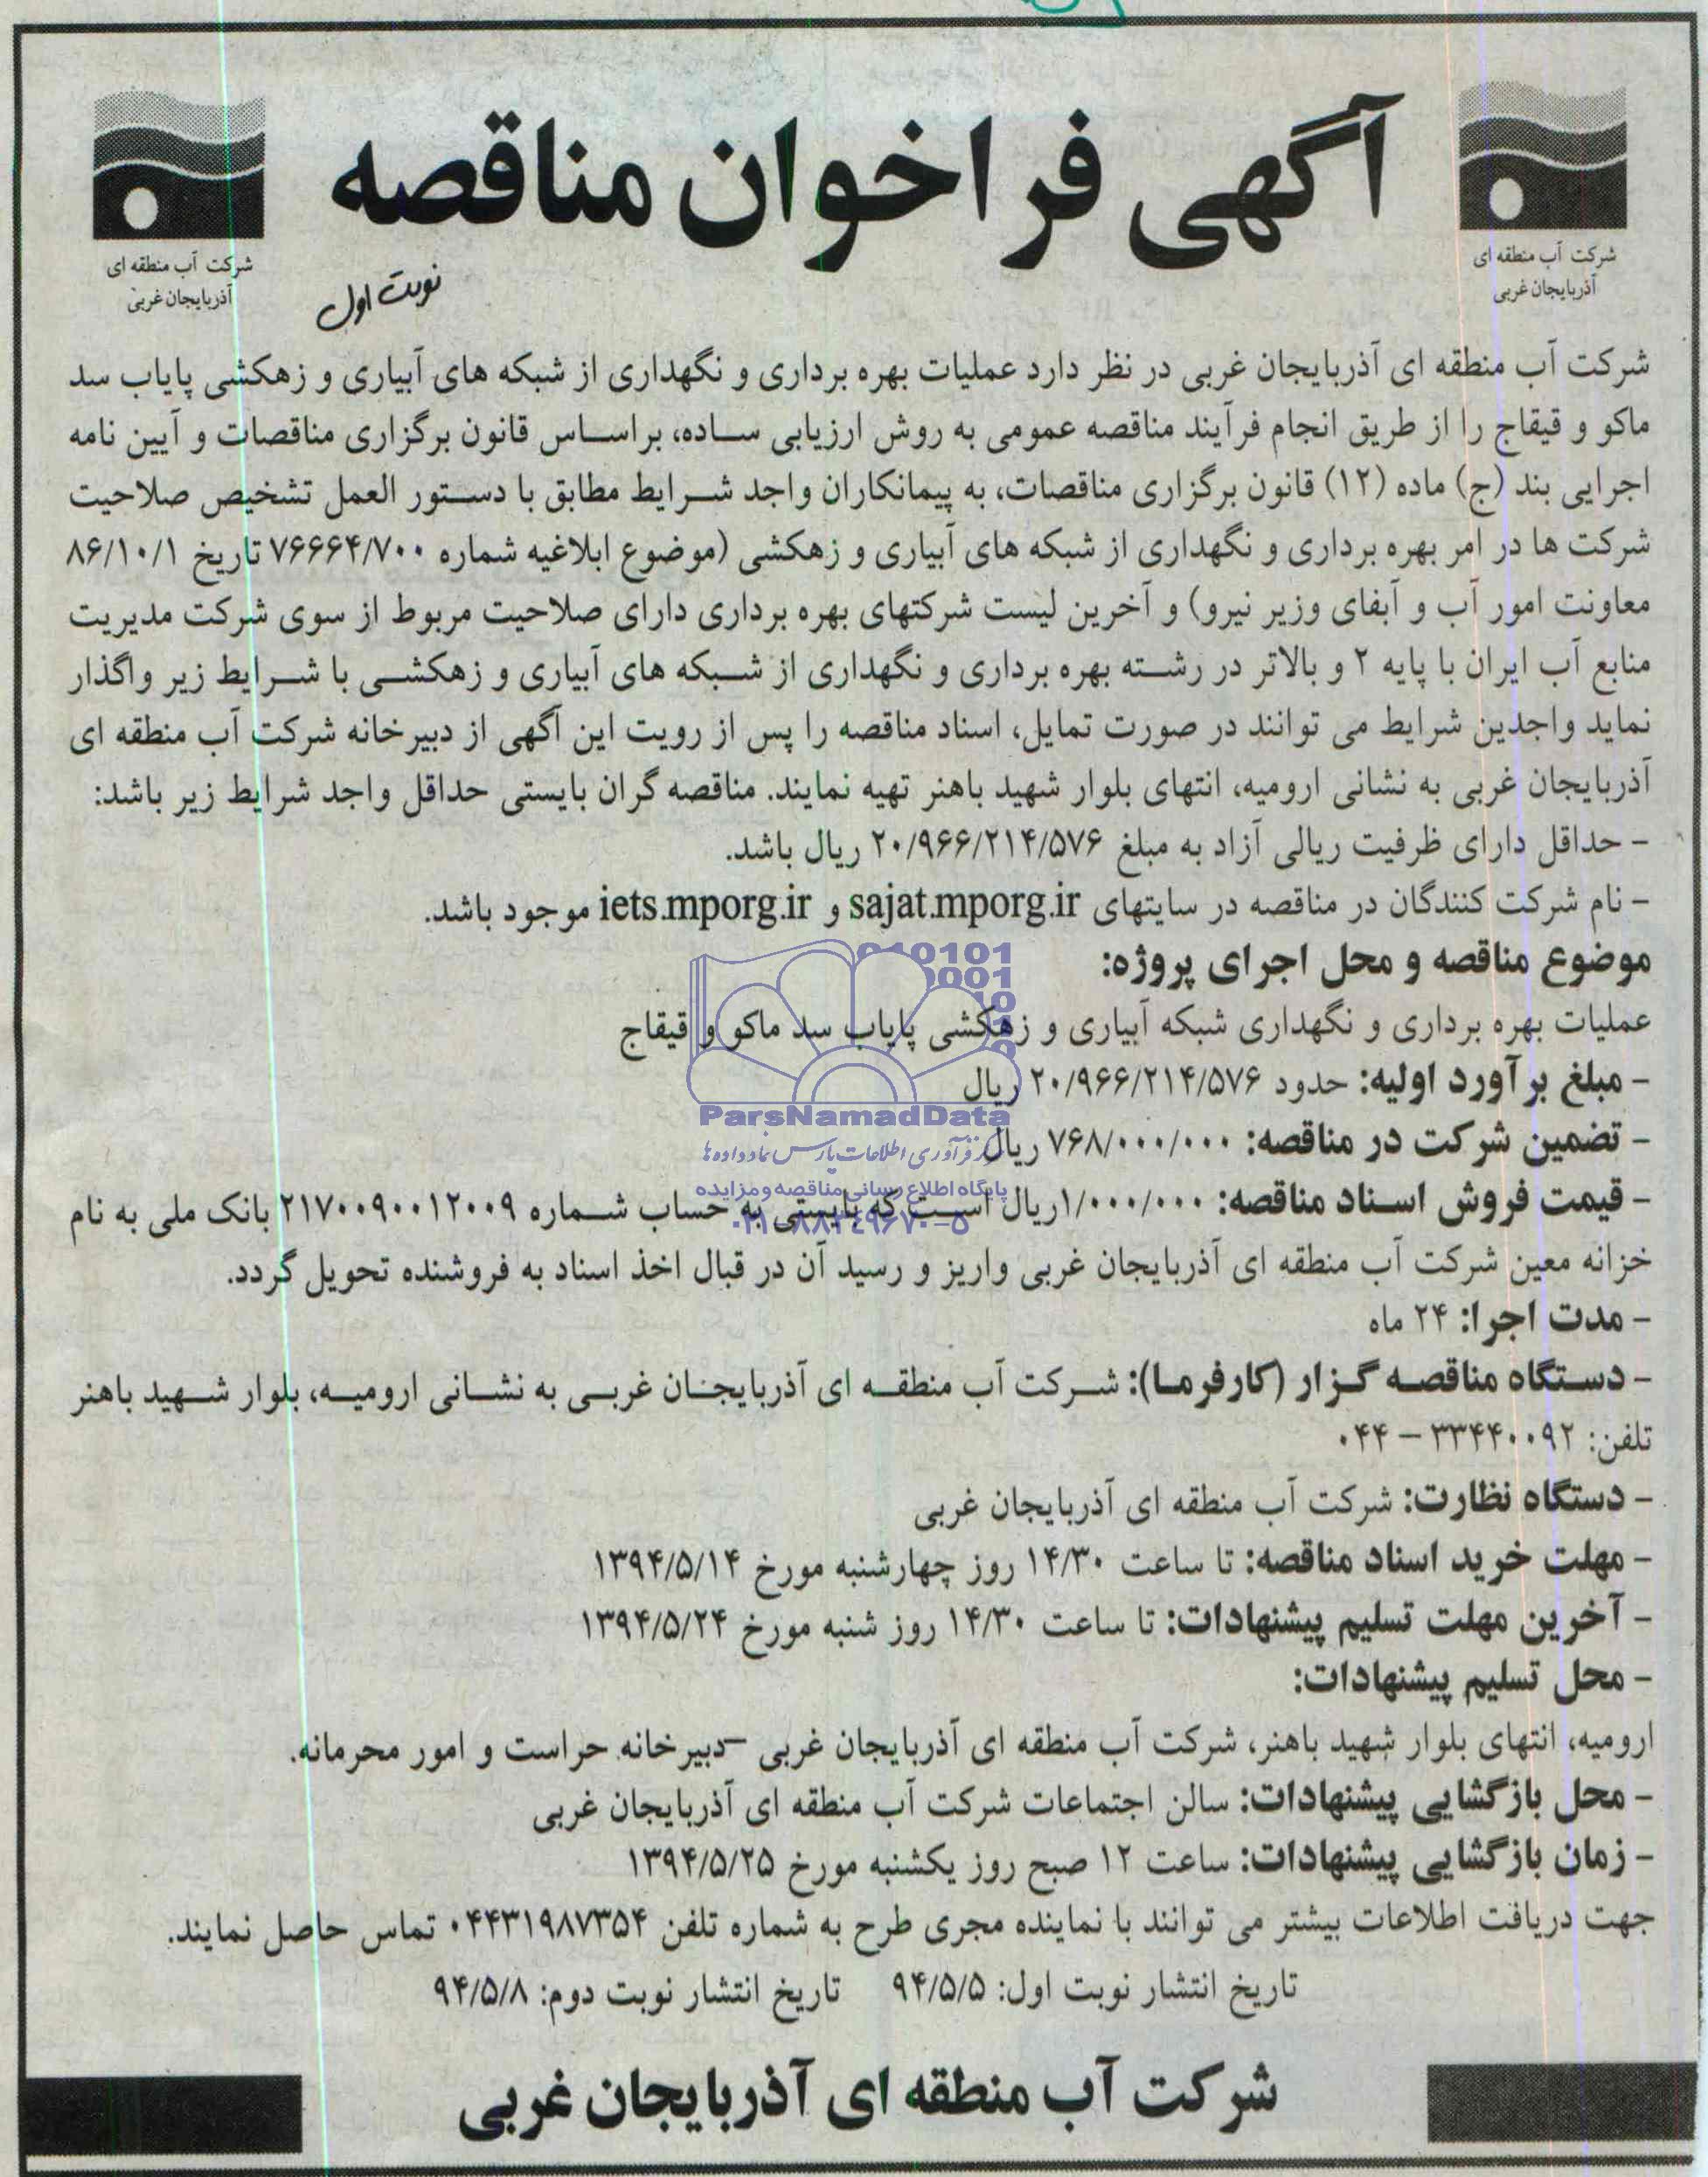 آگهی فراخوان مناقصه
شرکت آب منطقه ای
آذربایجان غربی
شرکت آب منطقه ای
آذربایجان غربی
نوبت اول
شرکت آب منطقه ای آذربایجان غربی در نظر دارد عملیات بهره برداری و نگهداری از شبکه های آبیاری و زهکشی پایاب سد
ماکو و قیقاج را از طریق انجام فرآیند مناقصه عمومی به روش ارزیابی ساده، براساس قانون برگزاری مناقصات و آیین نامه
اجرایی بند (ج) ماده (۱۲) قانون برگزاری مناقصات، به پیمانکاران واجد شرایط مطابق با دستور العمل تشخیص صلاحیت
شرکت ها در امر بهره برداری و نگهداری از شبکه های آبیاری و زهکشی (موضوع ابلاغیه شماره ۷۶۶۶۴/۷۰۰ تاریخ ۸۶/۱۰/۱
معاونت امور آب و آبفای وزیر نیرو) و آخرین لیست شرکتهای بهره برداری دارای صلاحیت مربوط از سوی شرکت مدیریت
منابع آب ایران با پایه ۲ و بالاتر در رشته بهره برداری و نگهداری از شبکه های آبیاری و زهکشی با شرایط زیر واگذار
نماید واجدین شرایط می توانند در صورت تمایل، اسناد مناقصه را پس از رویت این آگهی از دبیرخانه شرکت آب منطقه ای
آذربایجان غربی به نشانی ارومیه، انتهای بلوار شهید باهنر تهیه نمایند. مناقصه گران بایستی حداقل واجد شرایط زیر باشد:
- حداقل دارای ظرفیت ریالی آزاد به مبلغ ۲۰/۹۶۶/۲۱۴/۵۷۶ ریال باشد.
- نام شرکت کنندگان در مناقصه در سایتهای sajat.mporg.ir و iets.mporg.ir موجود باشد.
موضوع مناقصه و محل اجرای پروژه:
عملیات بهره برداری و نگهداری شبکه آبیاری و زهکشی پایاب سد ماکو و قیقاج
- مبلغ برآورد اولیه: حدود ۲۰/۹۶۶/۲۱۴/۵۷۶ ریال
ParsNamadData
- تضمین شرکت در مناقصه: ۷۶۸/۰۰۰/۰۰۰ ریال
مرکز فرآوری اطلاعات پارس نماد داده ها
پایگاه اطلاع رسانی مناقصه و مزایده
- قیمت فروش اسناد مناقصه: ۱/۰۰۰/۰۰۰ریال است که بایستی به حساب شماره ۲۱۷۰۰۹۰۰۱۲۰۰۹ بانک ملی به نام
۰۲۱-۸۸۳۴۹۶۷۰-۵
خزانه معین شرکت آب منطقه ای آذربایجان غربی واریز و رسید آن در قبال اخذ اسناد به فروشنده تحویل گردد.
- مدت اجرا: ۲۴ ماه
- دستگاه مناقصه گزار (کارفرما): شرکت آب منطقه ای آذربایجان غربی به نشانی ارومیه، بلوار شهید باهنر
تلفن: ۳۳۴۴۰۰۹۲ - ۰۴۴
- دستگاه نظارت: شرکت آب منطقه ای آذربایجان غربی
- مهلت خرید اسناد مناقصه: تا ساعت ۱۴/۳۰ روز چهارشنبه مورخ ۱۳۹۴/۵/۱۴
- آخرین مهلت تسلیم پیشنهادات: تا ساعت ۱۴/۳۰ روز شنبه مورخ ۱۳۹۴/۵/۲۴
- محل تسلیم پیشنهادات:
ارومیه، انتهای بلوار شهید باهنر، شرکت آب منطقه ای آذربایجان غربی -دبیرخانه حراست و امور محرمانه.
- محل بازگشایی پیشنهادات: سالن اجتماعات شرکت آب منطقه ای آذربایجان غربی
- زمان بازگشایی پیشنهادات: ساعت ۱۲ صبح روز یکشنبه مورخ ۱۳۹۴/۵/۲۵
جهت دریافت اطلاعات بیشتر می توانند با نماینده مجری طرح به شماره تلفن ۰۴۴۳۱۹۸۷۳۵۴ تماس حاصل نمایند.
تاریخ انتشار نوبت اول: ۹۴/۵/۵ تاریخ انتشار نوبت دوم: ۹۴/۵/۸
شرکت آب منطقه ای آذربایجان غربی